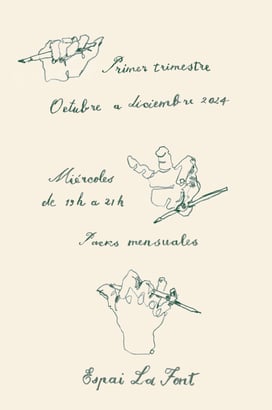 Primer trimestre
Octubre a diciembre 2024
Miércoles
de 19h a 21h
Packs mensuales
Espai La Font